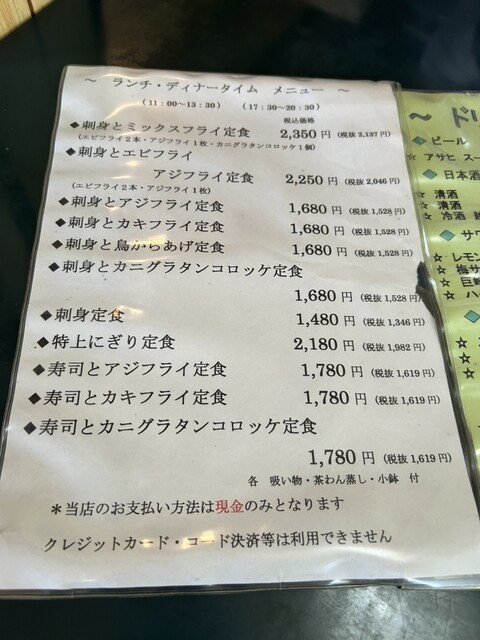 ～ ランチ・ディナータイム メニュー ～
（11：00～13：30） （17：30～20：30）
税込価格
◆刺身とミックスフライ定食 2,350 円 （税抜 2,137 円）
（エビフライ２本・アジフライ１枚・カニグラタンコロッケ１個）
◆刺身とエビフライ
アジフライ定食 2,250 円 （税抜 2,046 円）
（エビフライ２本・アジフライ１枚）
◆刺身とアジフライ定食 1,680 円 （税抜 1,528 円）
◆刺身とカキフライ定食 1,680 円 （税抜 1,528 円）
◆刺身と鳥からあげ定食 1,680 円 （税抜 1,528 円）
◆刺身とカニグラタンコロッケ定食
1,680 円 （税抜 1,528 円）
◆刺身定食 1,480 円 （税抜 1,346 円）
◆特上にぎり定食 2,180 円 （税抜 1,982 円）
◆寿司とアジフライ定食 1,780 円 （税抜 1,619 円）
◆寿司とカキフライ定食 1,780 円 （税抜 1,619 円）
◆寿司とカニグラタンコロッケ定食
1,780 円 （税抜 1,619 円）
各 吸い物・茶わん蒸し・小鉢 付
＊当店のお支払い方法は現金のみとなります
クレジットカード・コード決済等は利用できません
～ ドリ
◆ ビール
☆ アサヒ スー
◆ 日本酒
☆ 清酒
☆ 清酒
☆ 冷酒
◆ サワ
☆ レモン
☆ 梅サ
☆ 巨峰
☆ ハ
◆
☆
☆
☆